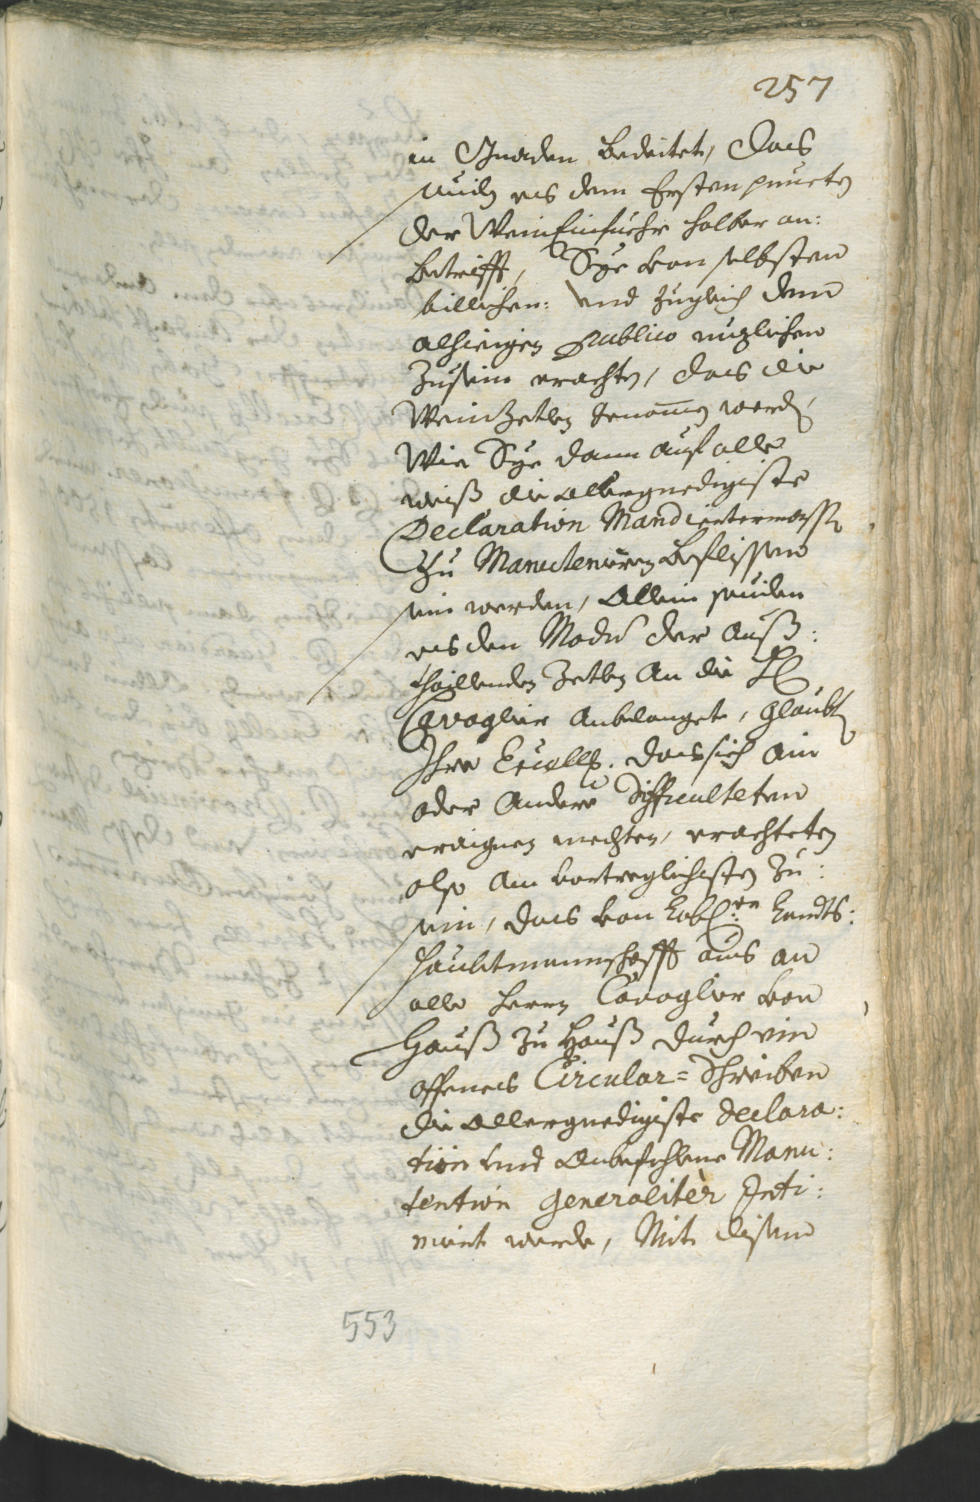 257
in Gnaden bedeitet, das
souil es dem Ersten puncten
der Wein Einfuehr halber an:
betrifft, Sye von selbsten
billichen: vnd zugleich dem
alhieigen Publico nuzlichen
zusein erachten, das die
Weinzetlen genomen werden,
Wie Sye dann auf alle
weiß die allergnedigiste
Declaration Mandiertermassen
zu Manuteniren beflissen
sein werden, Allein souilen
es den Modum der Auß:
thaillenden Zetlen an die H:
Cavaglier anbelanget, glaubten
Ihre Excell. das sich ain
oder andere Difficulteten
eraignen mechten, erachteten
also am vortreglichisten zu:
sein, das von Lobl:en Landts:
Haubtmannschafft aus an
alle herrn Cavaglier von
Hauß zu Hauß durch ein
offenes Circular= Schreiben
die allergnedigiste declara:
tion vnd anbefohlene Manu:
tention generalitèr Inti:
miert werde, Mit disem
553